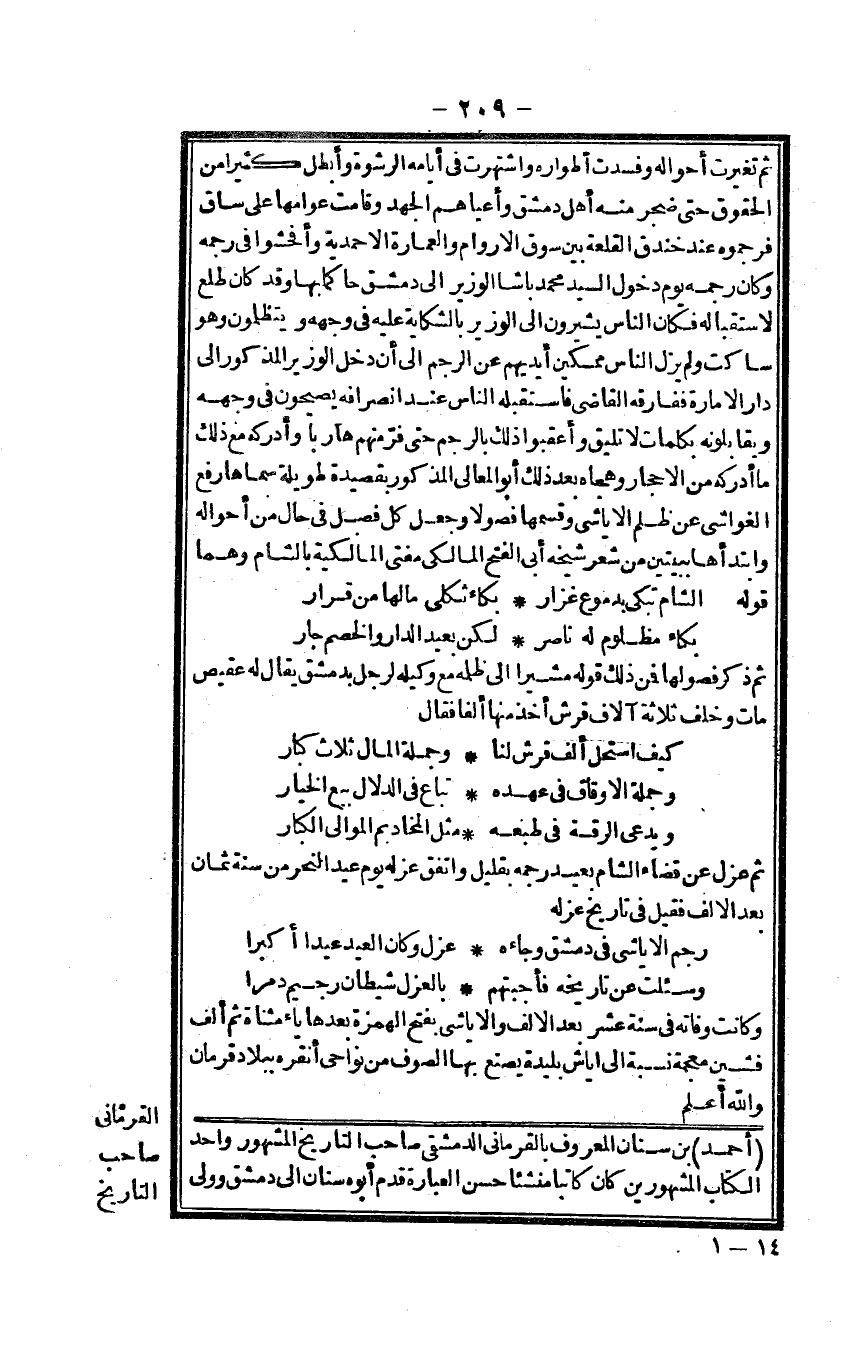 - ٢٠٩ -
ثم تغيرت أحواله وفسدت أطواره واشتهرت فى أيامه الرشوة وأبطل كثيرا من
الحقوق حتى ضجر منه أهل دمشق وأعياهم الجهد وقامت عوامها على ساق
فرجموه عند خندق القلعة بين سوق الاروام والعمارة الاحمدية وأفحشوا فى رجمه
وكان رجمه يوم دخول السيد محمد باشا الوزير الى دمشق حاكما بها وقد كان طلع
لاستقباله فكان الناس يشيرون الى الوزير بالشكاية عليه فى وجهه و يتظلمون وهو
ساكت ولم يزل الناس ممسكين أيديهم عن الرجم الى أن دخل الوزير المذكور الى
دار الامارة ففارقه القاضى فاستقبله الناس عند انصرافه يصيحون فى وجهه
ويقابلونه بكلمات لا تليق وأعقبوا ذلك بالرجم حتى فر منهم هاربا وأدركه مع ذلك
ما أدركه من الاحجار وهجاه بعد ذلك أبو المعالى المذكور بقصيدة طويلة سماها رفع
الغواشى عن ظلم الاياشى وقسمها فصولا وجعل كل فصل فى حال من أحواله
وابتدأها ببيتين من شعر شيخه أبى الفتح المالكى مفتى المالكية بالشام وهما
قوله الشام تبكى بدموع غزار * بكاء ثكلى مالها من قرار
بكاء مظلوم له ناصر * لكن بعيد الدار والخصم جار
ثم ذكر فصولها فمن ذلك قوله مشيرا الى ظلمه مع وكيله لرجل بدمشق يقال له عقيص
مات وخلف ثلاثة آلاف قرش أخذ منها ألفا فقال
كيف استحل ألف قرش لنا * وجملة المال ثلاث كبار
وجملة الاوقاف فى عهده * تباع فى الدلال بيع الخيار
ويدعى الرقة فى طبعه * مثل المخاديم الموالى الكبار
ثم عزل عن قضاء الشام بعيد رجمه بقليل واتفق عزله يوم عيد النحر من سنة ثمان
بعد الالف فقيل فى تاريخ عزله
رجم الاياشى فى دمشق وجاءه * عزل وكان العيد عيدا أكبرا
وسئلت عن تاريخه فأجبتهم * بالعزل شيطان رجيم دمرا
وكانت وفاته فى سنة عشر بعد الالف والاياشى بفتح الهمزة بعدها ياء مثناة ثم ألف
فشين معجمة نسبة الى اياش بليدة يصنع بها الصوف من نواحى أنقره ببلاد قرمان
والله أعلم
القرمانى
صاحب
التاريخ
(أحمد) بن سنان المعروف بالقرمانى الدمشقى صاحب التاريخ المشهور واحد
الكتاب المشهورين كان كاتبا منشئا حسن العبارة قدم أبوه سنان الى دمشق وولى
١٤ - ١